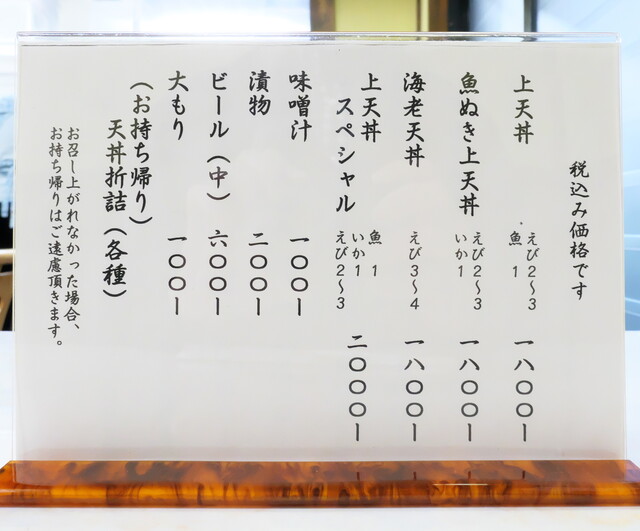 税込み価格です
上天丼
えび2～3
魚 1
一八〇〇ー
魚ぬき上天丼
えび2～3
いか1
一八〇〇ー
海老天丼
えび3～4
一八〇〇ー
上天丼
スペシャル
魚 1
いか1
えび2～3
二〇〇〇ー
味噌汁
一〇〇ー
漬物
二〇〇ー
ビール（中）
六〇〇ー
大もり
一〇〇ー
（お持ち帰り）
天丼折詰（各種）
お召し上がれなかった場合、
お持ち帰りはご遠慮頂きます。